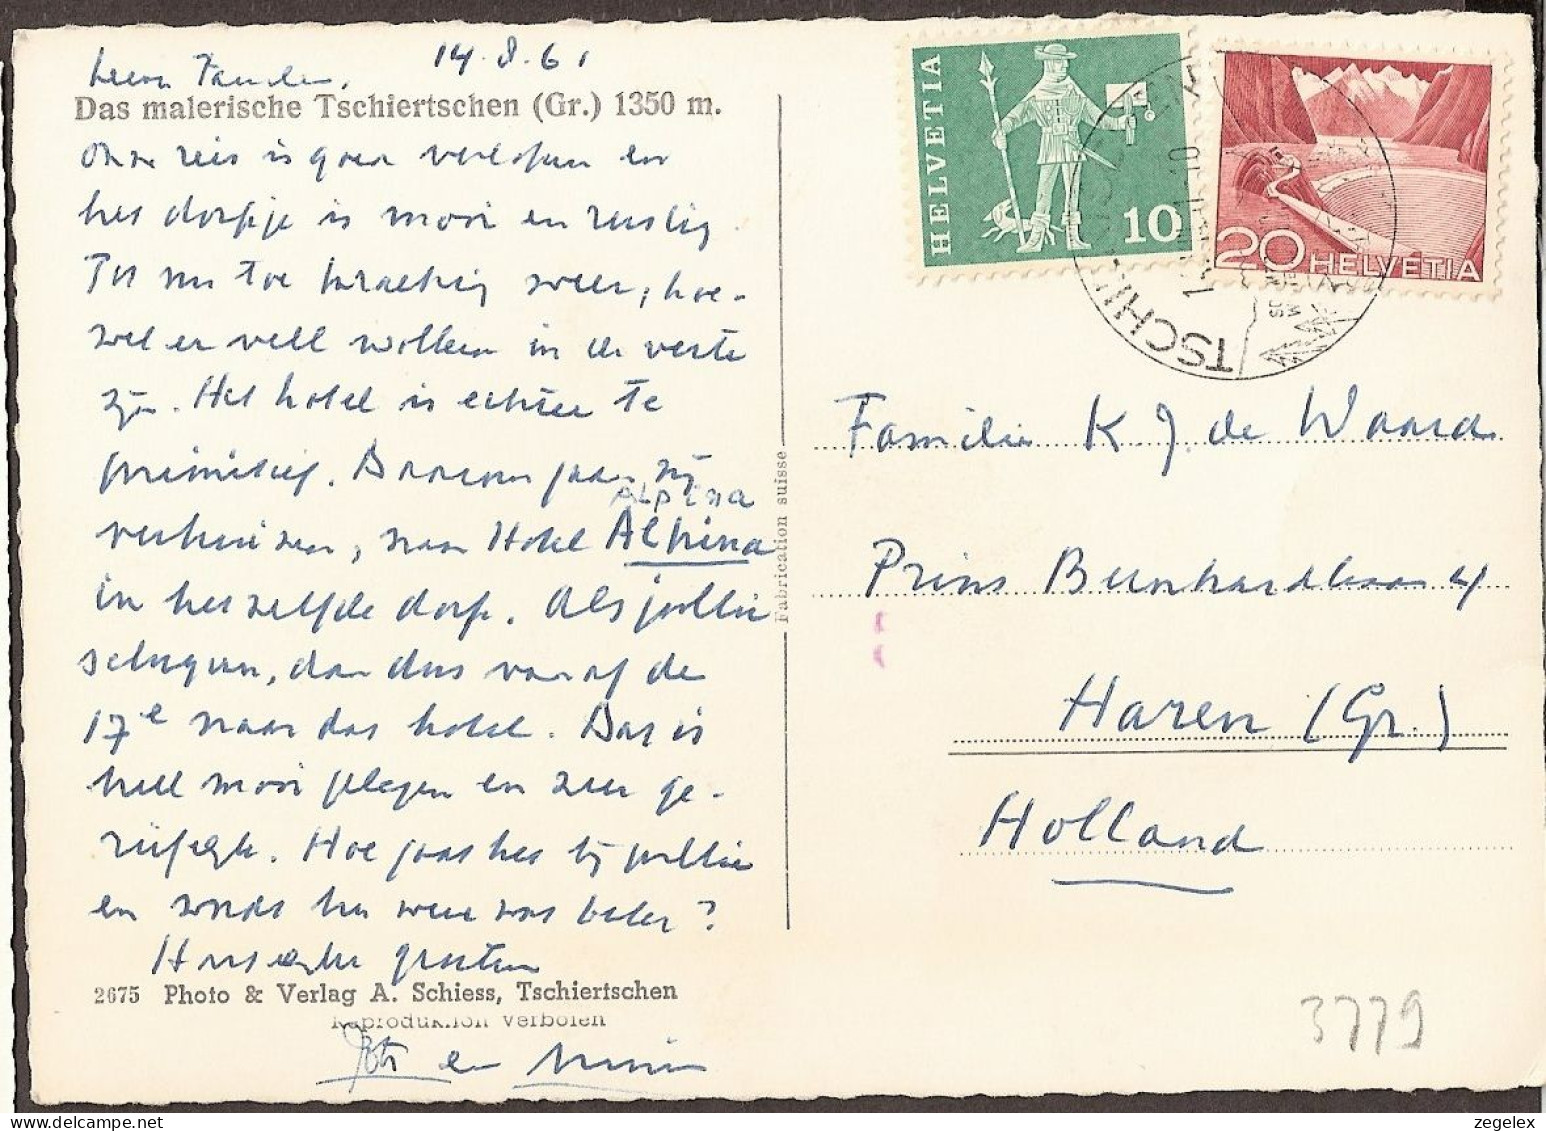 14.8.61
Beste Familie,
Das malerische Tschiertschen (Gr.) 1350 m.
Onze reis is goed verlopen en
het dorpje is mooi en rustig
Tot nu toe prachtig weer, hoe-
wel er veel wolken in de verte
zijn. Het hotel is echter te
primitief. Daarom gaan wij
ALPINA
verhuizen, naar Hotel Alpina
in hetzelfde dorp. Als jullie
schrijven, dan dus vanaf de
17e naar dat hotel. Dat is
heel mooi gelegen en zeer ge-
riefelijk. Hoe gaat het bij jullie
en wordt het weer wat beter?
Hartelijke groeten
2675 Photo & Verlag A. Schiess, Tschiertschen
Reproduktion verboten
en
Fabrication suisse
HELVETIA
10
20 HELVETIA
TSCHI
Familie K J. de Waard
Prins Bernhardlaan 4
Haren (Gr.)
Holland
3779
zegelex